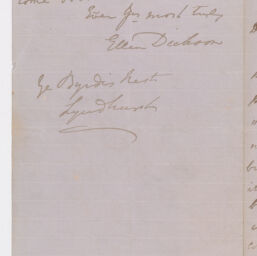 come
Ever yrs most truly
Ellen Dickson
Ye Byrdis Nest
Lyndhurst